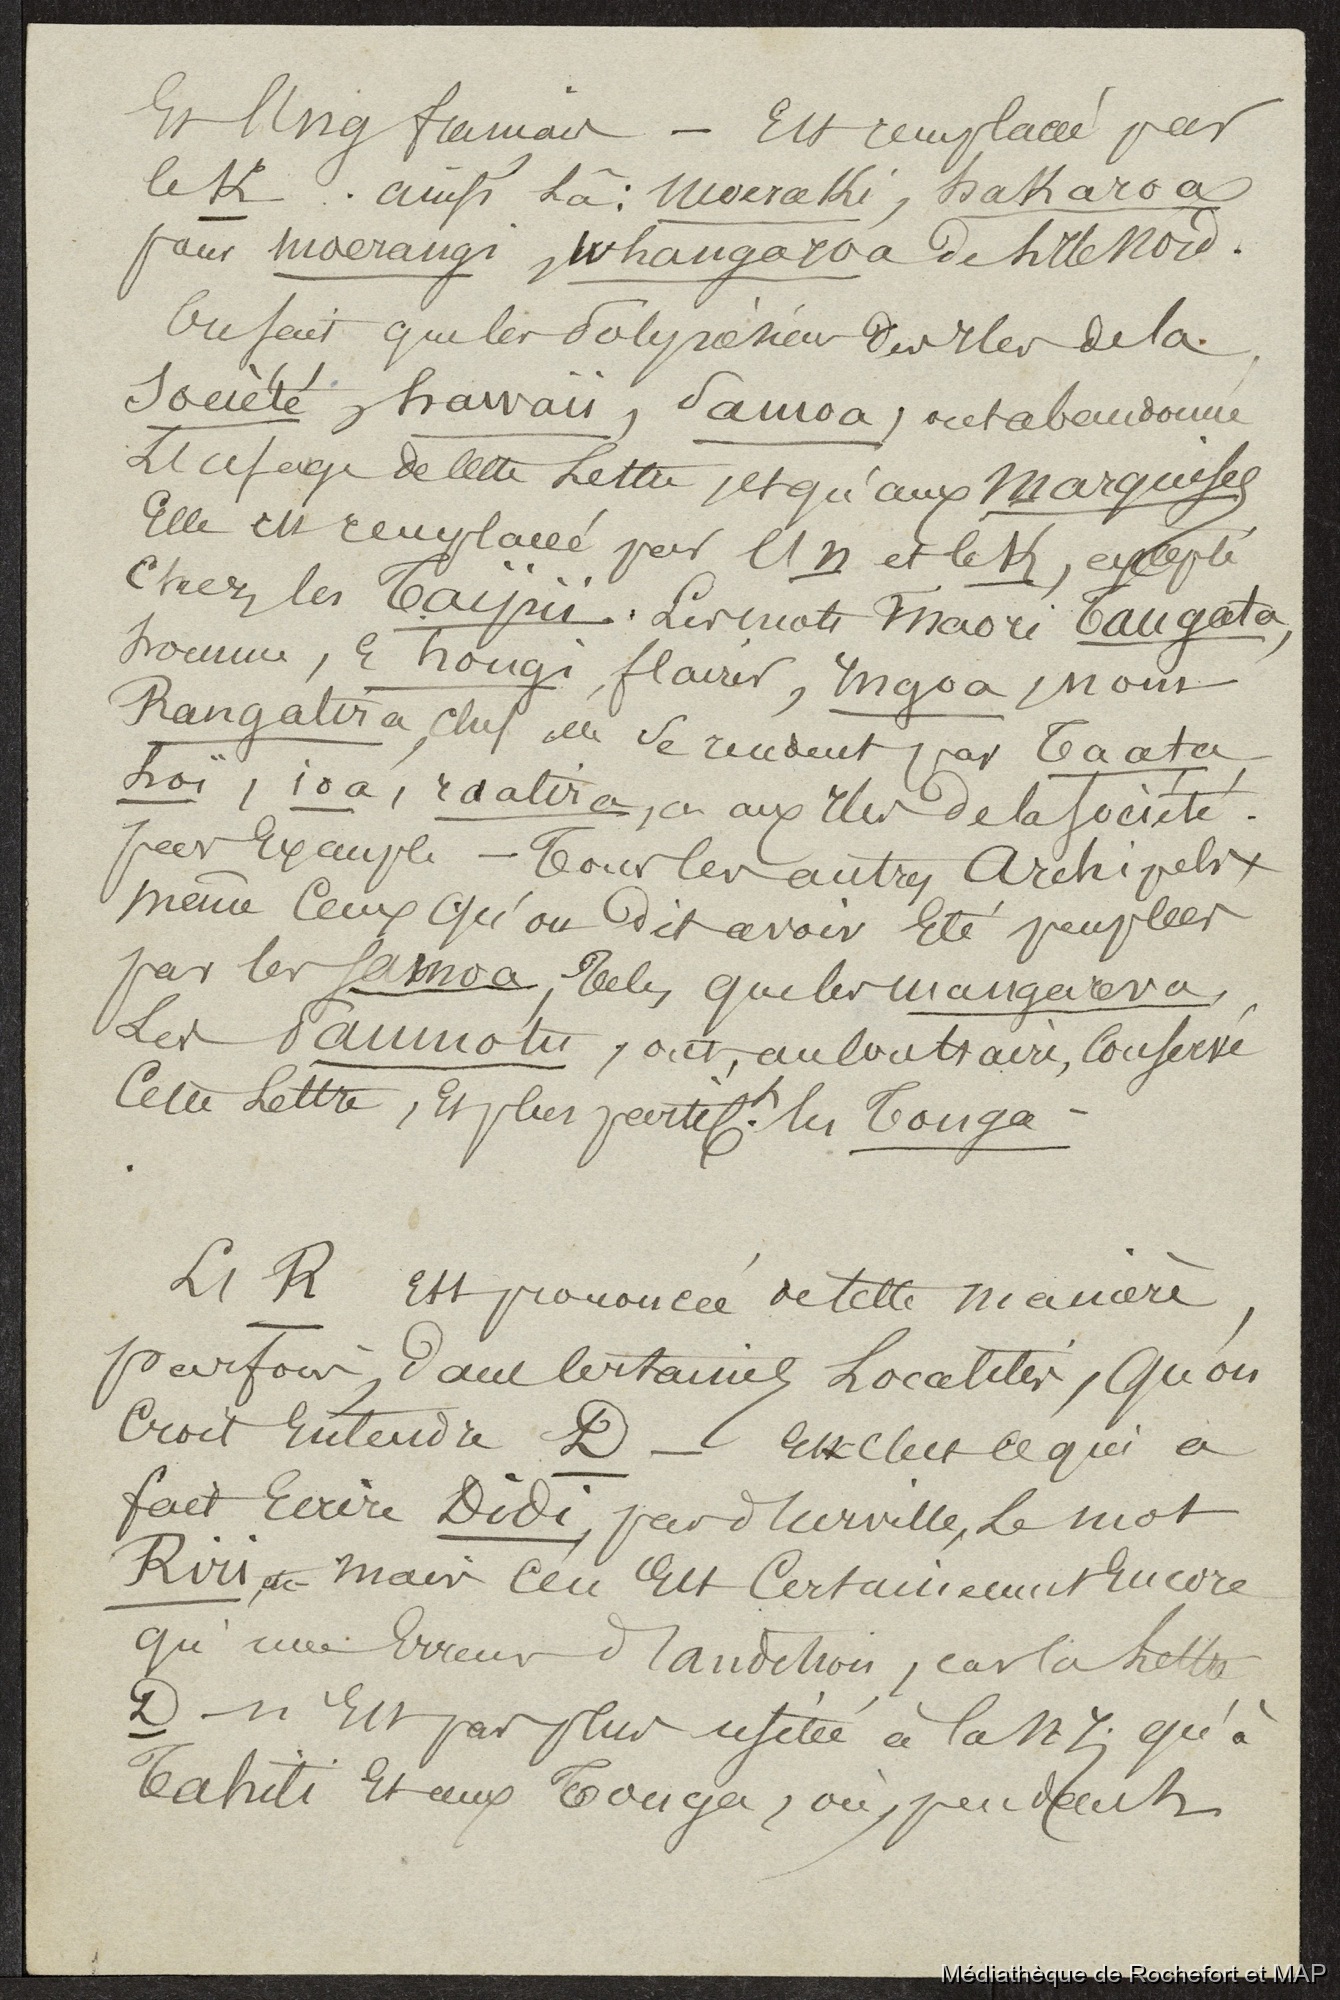 Et l'Ung français — Est remplacé par
le K . ainsi là : Moeraki, hakaroa
pour moerangi, Whangaroa de l'Ile Nord.
On sait que les Polynésiens des Iles de la
Société, hawaii, Samoa, ont abandonné
l'usage de cette Lettre, et qu'aux Marquises
Elle est remplacée par l'n et le K, excepté
Chez les Taïpii. Les mots Maori Tangata,
homme, E hongi, flairer, Ingoa, nom
Rangatira, chef, etc se rendent par Taata,
hoï, ioa, raatira, etc aux Iles de la Société.
par Exemple — Tous les autres Archipels,
même Ceux qu'on dit avoir Eté peuplées
par les Samoa, tels que les mangareva,
Les Paumotu, ont, au Contraire, Conservé
Cette Lettre, Et plus partict. les Tonga —
Le R est prononcée de telle manière,
parfois, dans Certaines Localités, Qu'on
Croit Entendre D — Et c'est ce qui a
fait Ecrire Didi, par d'Urville, Le mot
Riri, etc mais C'en Est Certainement Encore
qu'une Erreur d'audition, car la Lettre
D n'Est pas plus usitée à la N Z. qu'à
Tahiti Et aux Tonga, où, pendant
Médiathèque de Rochefort et MAP